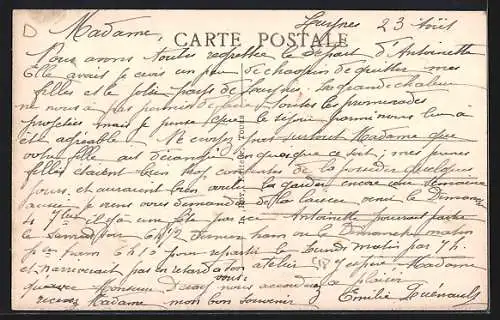 Madame,
23 Août
CARTE POSTALE
Nous avons toutes regrettée le départ d'Antoinette
Elle avait je crois un peu de chagrin de quitter mes
filles et le joli pays de La grande chaleur
ne nous a pas permis de faire toutes les promenades
projetées mais je pense que le séjour parmi nous lui a
été agréable. Ne croyez pas surtout Madame que
votre fille ait dérangé quoique ce soit, mes jeunes
filles étaient bien trop contentes de la posséder quelques
jours, et auraient bien voulu la garder encore une semaine
aussi je viens vous demander de la laisser venir le Dimanche
4 7bre il y a une fête par ici Antoinette pourrait
le samedi soir 6h12 ou le Dimanche matin
6h13 pour repartir le lundi matin par 7h.
et n'arriverait pas en retard à son atelier. J'espère Madame
que Monsieur nous accordera ce plaisir
vous
recevez Madame mon bon souvenir Emilie Guénault